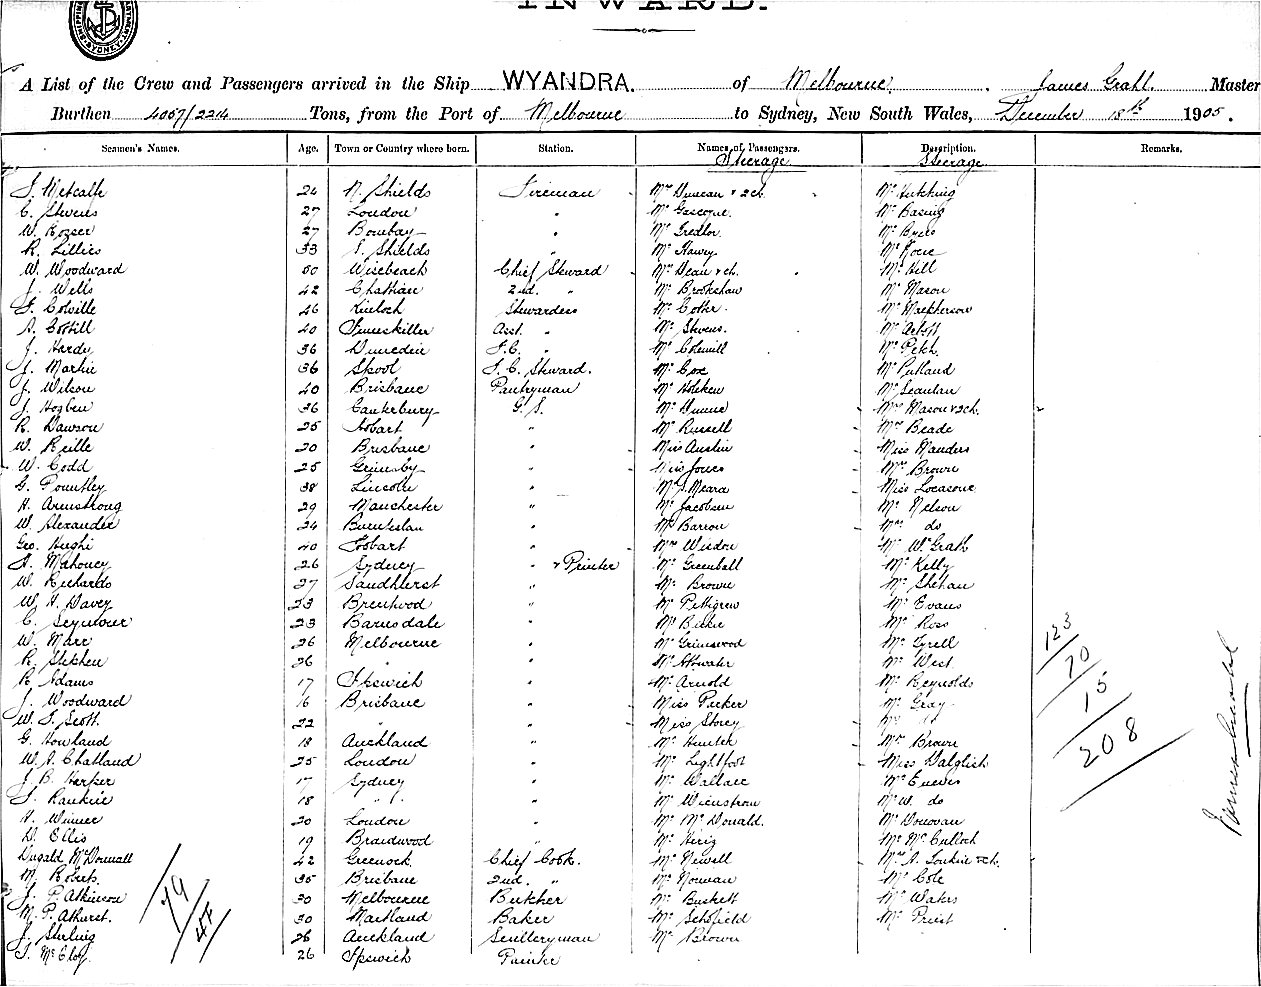 INWARD.
SHIPPING SYDNEY
A List of the Crew and Passengers arrived in the Ship WYANDRA. of Melbourne, James Grahl. Master
Burthen 4057/2214 Tons, from the Port of Melbourne to Sydney, New South Wales, December 18th 1905.
Seamen's Names. Age. Town or Country where born. Station. Names of Passengers. Description. Remarks.
Steerage Steerage
J. Metcalfe 24 N. Shields Fireman Mrs Duncan & 2 ch. Mr Hutching
C. Stevens 27 London " Mr Gascoyne. Mr Basing
W. Rosser 27 Bombay " Mr Gredlor. Mr
R. Lillies 33 S. Shields " Mr Harvey Mr
W. Woodward 50 Wisbeach Chief Steward Mrs Dean & ch. Mr Hill
J. Wells 42 Chatham 2nd. " Mr Brookshaw Mr Mason
F. Colville 46 Kinloch Stewardess Mr Cother. Mr Macpherson
A. Cottill 40 Asst. " Mr Stevens. Mr
J. Hardy 36 Dunedin F.C. " Mr Colemill Mr Petch.
J. Martin 36 F. C. Steward. Mr Cox Mr Putland
J. Wilson 40 Brisbane Pantryman Mr Mr Scanlan
J. Hogben 36 Canterbury G. S. Mr Dunne Mrs Mason & 2 ch.
R. Dawson 25 Hobart " Mr Russell Mrs Beade
W. Reille 20 Brisbane " Miss Austin Miss Manders
W. Codd 25 Grimsby " Miss Jones Mrs Brown
G. Pountley 38 Lincoln " Mr O'Meara Miss
H. Armstrong 29 Manchester " Mr Jacobsen Mr Nelson
W. Alexander 24 " Mr Barron Mrs do
Geo. Hughi 40 Hobart " Mrs Wisdon Mr McGrath
A. Mahoney 26 Sydney " & Printer Mr Greenhall Mr Kelly
W. Richards 27 Sandhurst " Mr Brown Mr Shehan
W. H. Davey 23 Brentwood " Mr Pettigrew Mr Evans
C. Seymour 23 Barnsdale " Mr Mr Ross
W. Marr 26 Melbourne " Mr Grimwood Mr Tyrell
R. Stephen 26 " " Mr Attwater Mr West.
R. Adams 17 Ipswich " Mr Arnold Mr Reynolds
J. Woodward 16 Brisbane " Miss Parker Mr Gray
W. J. Scott. 22 " " Miss Storey
G. Howland 18 Auckland " Mr Hunter Mrs Brown
W. A. Chatland 25 London " Mr Lightfoot Miss Dalglish
J. B. Harper 17 Sydney " Mr Wallace Mr
F. Rankine 18 " " " Mr Wienstrom Mr W. do
H. Winner 20 London " Mr McDonald. Mr Donovan
D. Ellis 19 Braidwood " Mr Herig Mr McCulloch
Dugald McDowall 42 Greenock. Chief Cook. Mr Newell Mrs A. & ch.
M. Roberts. 35 Brisbane 2nd. " Mr Norman Mr Cole
J. P. Atkinson 30 Melbourne Butcher Mr Burkett Mr Waters
M. P. Athurst. 30 Maitland Baker Mr Schofield Mr Priest
J. Sterling 26 Auckland Sculleryman Mr Brown
J. McEloy 26 Ipswich Painter
79
123
70
15
208